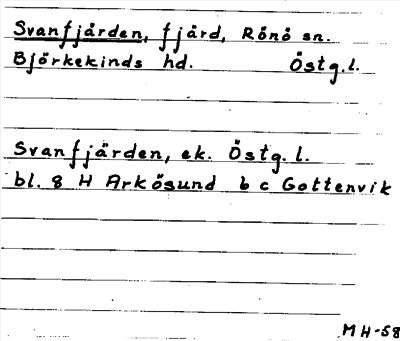 Svanfjärden, fjärd, Rönö sn.
Björkekinds hd. Östg.l.
Svanfjärden, ek. Östg. l.
bl. 8 H Arkösund b c Gottenvik
MH-58